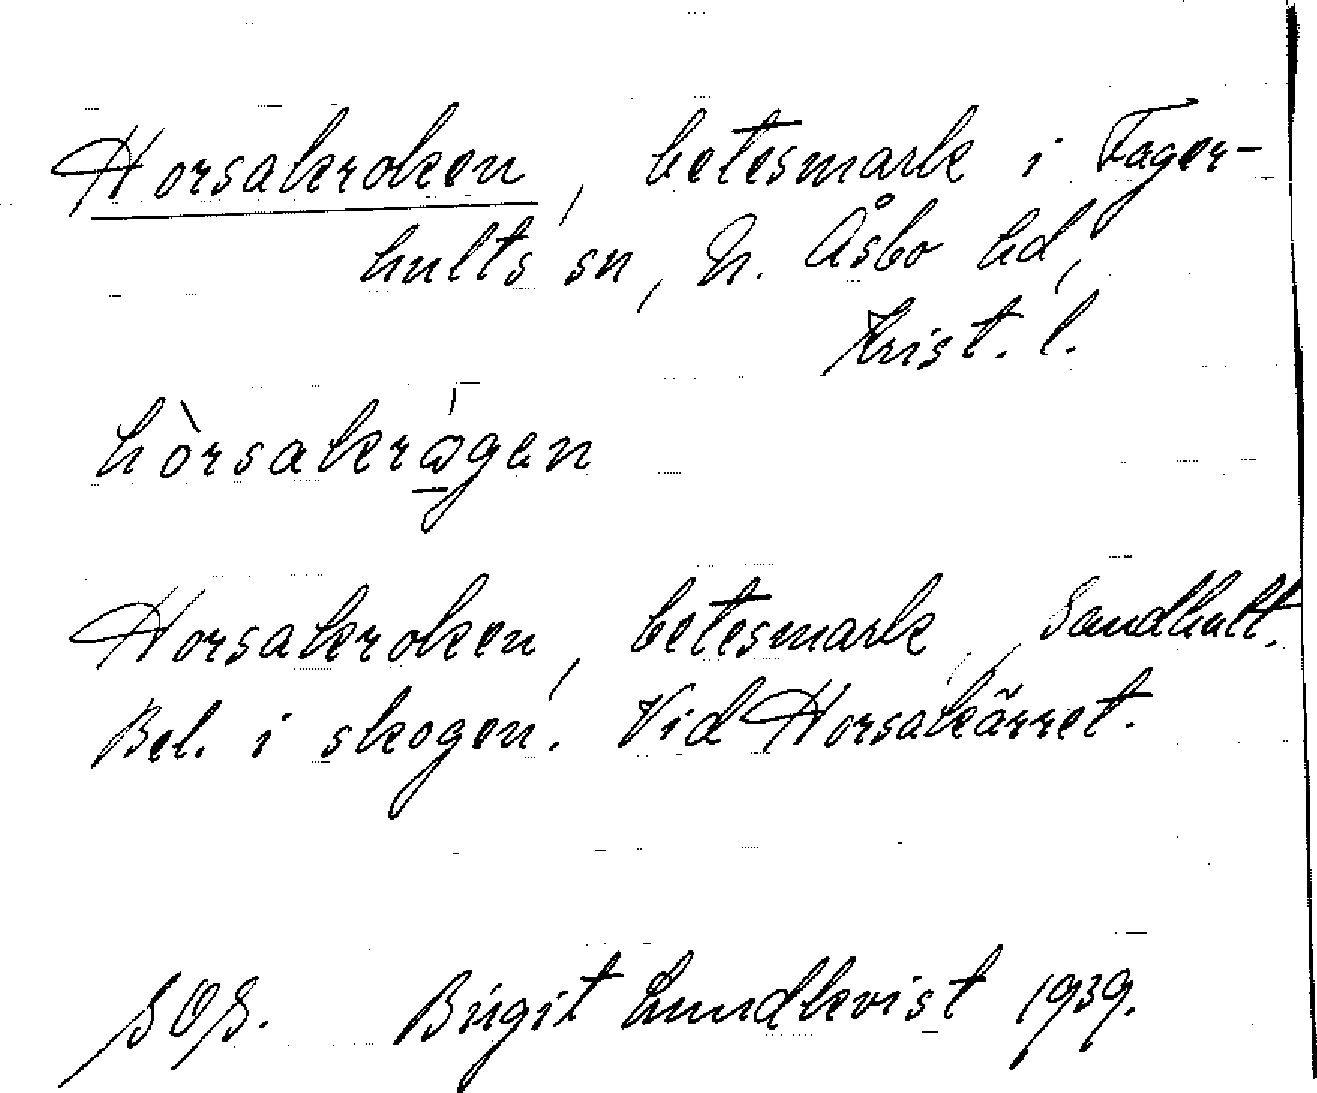 Horsakroken, betesmark i Fager-
hults sn, N. Åsbo hd,
Krist. l.
hòrsakrǫ́gan
Horsakroken, betesmark, Sandhult.
Bel. i skogen. Vid Horsakärret.
SOS. Birgit Lundkvist 1939.